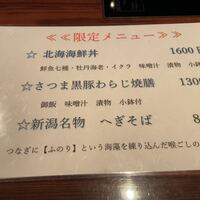 ≪≪限定メニュー≫≫
☆北海海鮮丼 1600
鮮魚七種・牡丹海老・イクラ 味噌汁 漬物 小鉢
☆さつま黒豚わらじ焼膳 130
御飯 味噌汁 漬物 小鉢付
☆新潟名物 へぎそば 8
つなぎに【ふのり】という海藻を練り込んだ喉ごしの